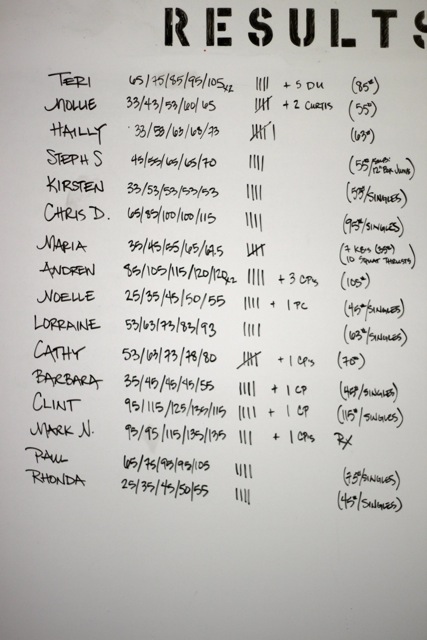 RESULTS
TERI 65/75/85/95/105x2 |||| + 5 DU (85#)
MOLLIE 33/43/53/60/65 + 2 CURTIS (55#)
HAILLY 33/53/63/68/73 (63#)
STEPH S 45/55/65/65/70 |||| (55#/
KIRSTEN 33/53/53/53/53 |||| (53#/SINGLES)
CHRIS D. 65/85/100/100/115 |||| (95#/SINGLES)
MARIA 35/45/55/65/67.5 (7 KBS (35#) 10 SQUAT THRUSTS)
ANDREW 85/105/115/120/120x2 |||| + 3 CPs (105#)
NOELLE 25/35/45/50/55 |||| + 1 PC (45#/SINGLES)
LORRAINE 53/63/73/83/93 |||| (63#/SINGLES)
CATHY 53/63/73/78/80 + 1 CPs (70#)
BARBARA 35/45/45/45/55 |||| + 1 CP (45#/SINGLES)
CLINT 95/115/125/135/115 |||| + 1 CP (115#/SINGLES)
MARK N. 95/95/115/135/135 ||| + 1 CPs RX
PAUL 65/75/95/95/105 |||| (75#/SINGLES)
RHONDA 25/35/45/50/55 |||| (45#/SINGLES)